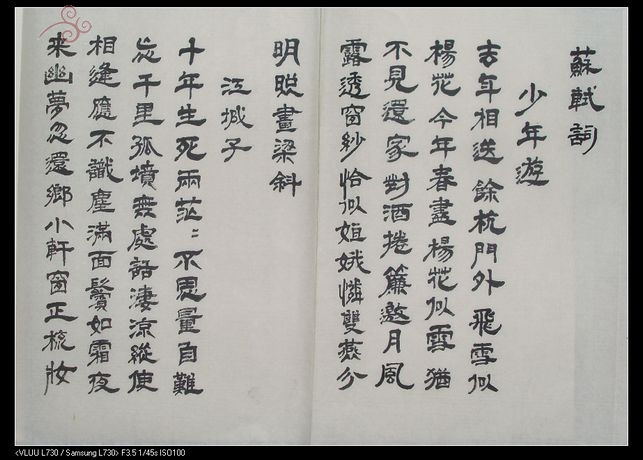 蘇軾詞
少年遊
去年相送餘杭門外飛雪似
楊花今年春盡楊花似雪猶
不見還家對酒捲簾邀月風
露透窗紗恰似姮娥憐雙燕分
明照畫梁斜
江城子
十年生死兩茫〻不思量自難
忘千里孤墳無處話淒涼縱使
相逢應不識塵滿面鬢如霜夜
來幽夢忽還鄉小軒窗正梳妝
<VLUU L730 / Samsung L730> F3.5 1/45s ISO100